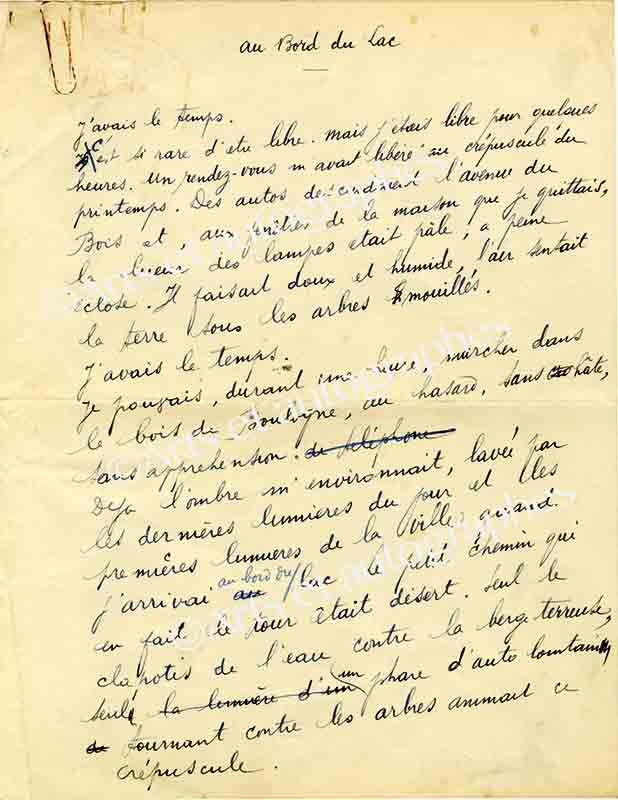 au Bord du Lac
J'avais le temps.
C'est si rare d'être libre. mais j'étais libre pour quelques
heures. Un rendez-vous m'avait libéré au crépuscule du
printemps. Des autos descendaient l'avenue du
Bois et, aux fenêtres de la maison que je quittais,
la lueur des lampes était pâle, à peine
éclose. Il faisait doux et humide, l'air sentait
la terre sous les arbres mouillés.
J'avais le temps.
Je pouvais, durant une heure, marcher dans
le bois de Boulogne, au hasard, sans hâte,
sans appréhension. de téléphone
Déjà l'ombre m'environnait, lavée par
les dernières lumières du jour et les
premières lumières de la ville quand
j'arrivai au bord du lac le petit chemin qui
en fait le tour était désert. Seul le
clapotis de l'eau contre la berge terreuse,
seul la lumière d'un un phare d'auto lointain
tournant contre les arbres animait ce
crépuscule.